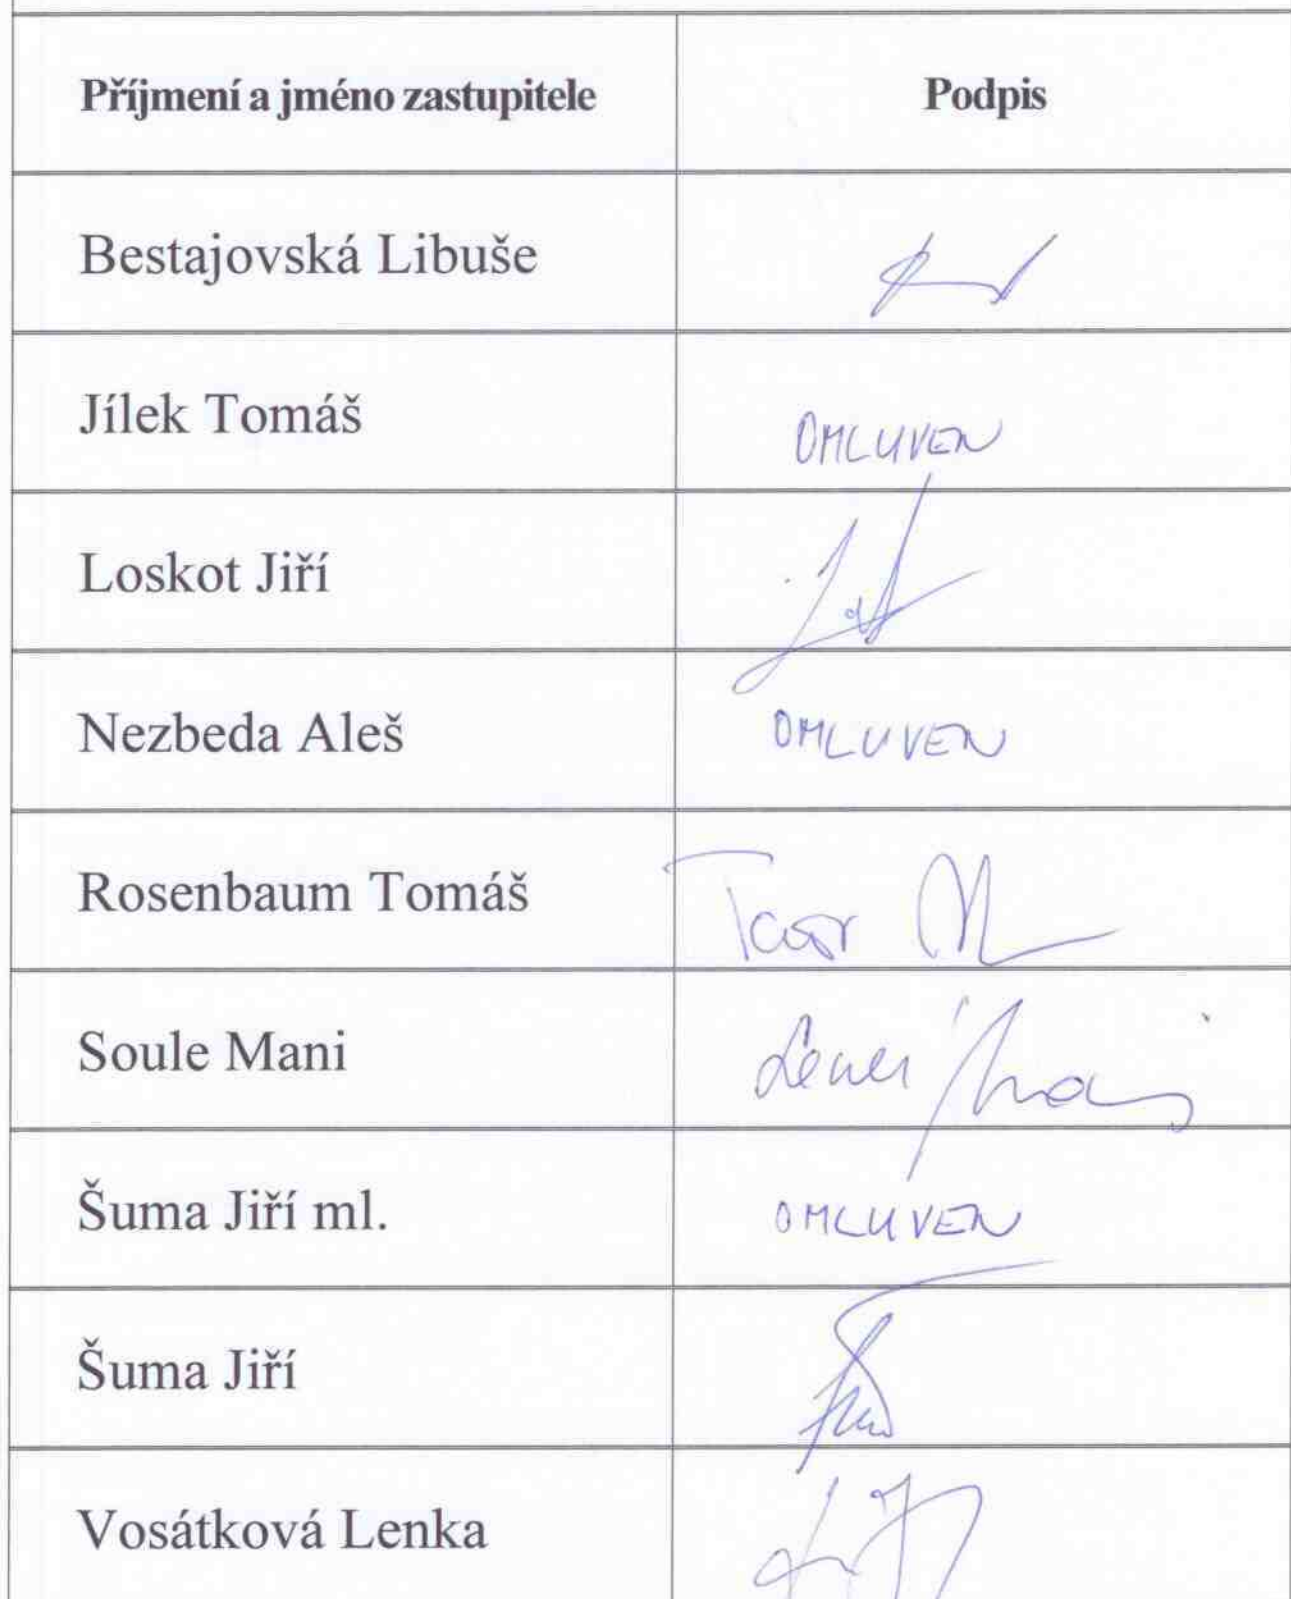 Příjmení a jméno zastupitele Podpis
Bestajovská Libuše
Jílek Tomáš OMLUVEN
Loskot Jiří
Nezbeda Aleš OMLUVEN
Rosenbaum Tomáš
Soule Mani
Šuma Jiří ml. OMLUVEN
Šuma Jiří
Vosátková Lenka